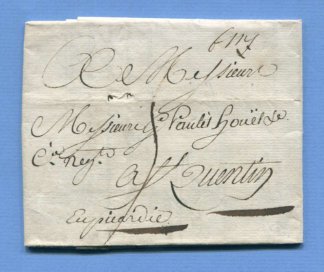 A Messieurs
Messieurs Paulet houët &
Cie Negts
a St Quentin
En picardie